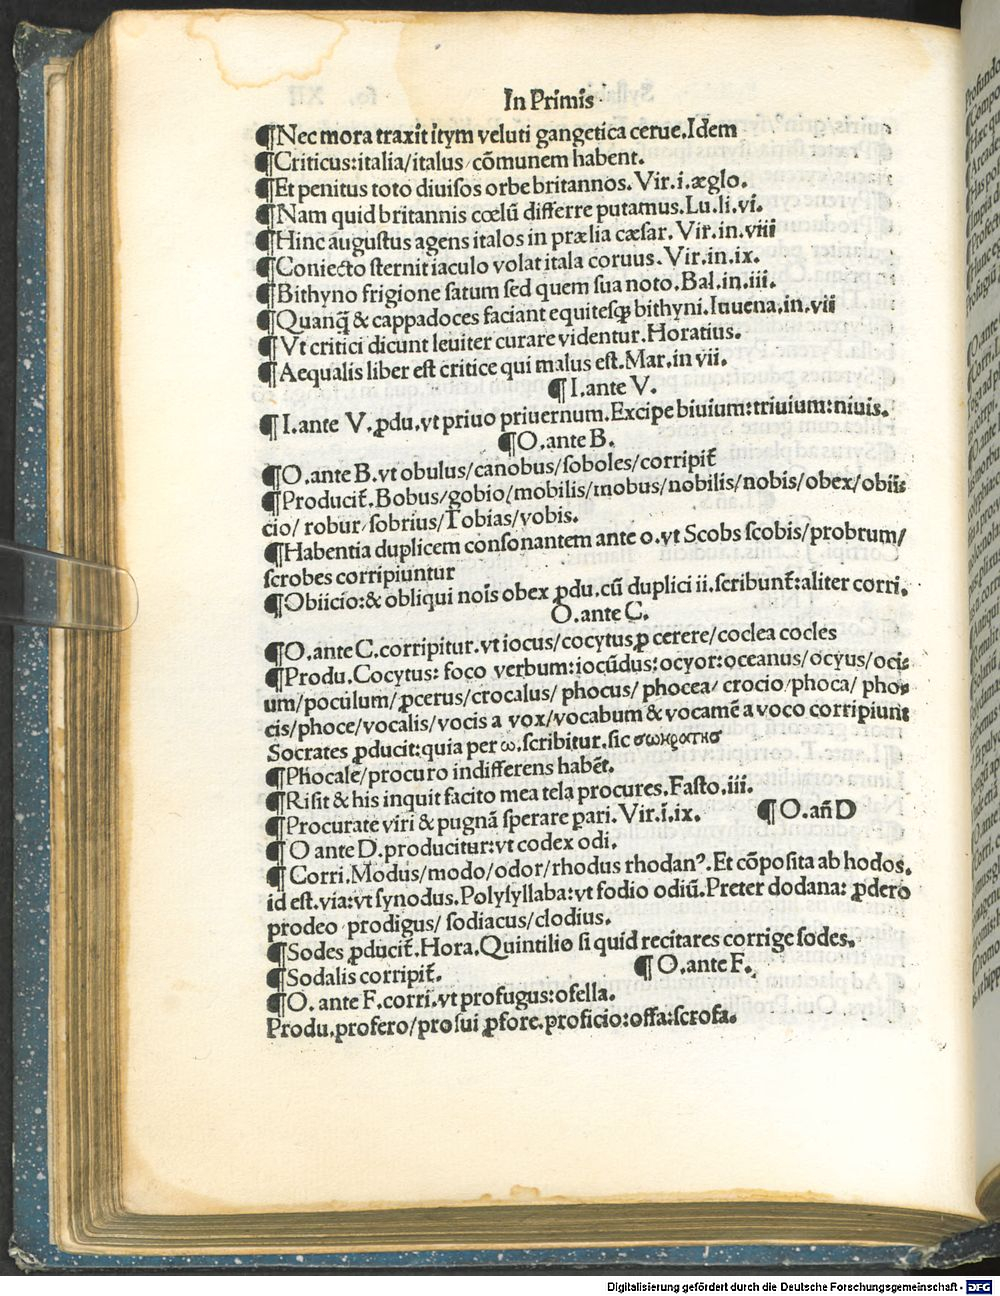 In Primis
¶Nec mora traxit itym veluti gangetica cerue.Idem
¶Criticus:italia/italus cõmunem habent.
¶Et penitus toto diuisos orbe britannos.Vir.i.æglo.
¶Nam quid britannis cœlũ differre putamus.Lu.li.vi.
¶Hinc augustus agens italos in prælia cæsar.Vir.in.viii
¶Coniecto sternit iaculo volat itala coruus.Vir.in.ix.
¶Bithyno frigione satum sed quem sua noto.Bal.in.iii.
¶Quanq̃ & cappadoces faciant equitesqꝫ bithyni.Iuuena.in.vii
¶Vt critici dicunt leuiter curare videntur.Horatius.
¶Aequalis liber est critice qui malus est.Mar.in vii.
¶I.ante V.
¶I.ante V.ꝓdu.vt priuo priuernum.Excipe biuium:triuium:niuis.
¶O.ante B.
¶O.ante B.vt obulus/canobus/soboles/corripit̃
¶Producit̃.Bobus/gobio/mobilis/mobus/nobilis/nobis/obex/obii-
cio/robur/sobrius/Tobias/vobis.
¶Habentia duplicem consonantem ante o.vt Scobs scobis/probrum/
scrobes corripiuntur
¶Obiicio:& obliqui nois obex ꝓdu.cũ duplici ii.scribunt̃:aliter corri.
O.ante C.
¶O.ante C.corripitur.vt iocus/cocytus ꝓ cerere/coclea cocles
¶Produ.Cocytus: foco verbum:iocũdus:ocyor:oceanus/ocyus/oci-
um/poculum/ꝓcerus/crocalus/ phocus/ phocea/ crocio/phoca/ pho-
cis/phoce/vocalis/vocis a vox/vocabum & vocamẽ a voco corripiunt
Socrates ꝓducit:quia per ω.scribitur.sic σωκρατησ
¶Phocale/procuro indifferens habẽt.
¶Risit & his inquit facito mea tela procures.Fasto.iii.
¶Procurate viri & pugnã sperare pari.Vir.ĩ.ix. ¶O.añ D
¶O ante D.producitur:vt codex odi.
¶Corri.Modus/modo/odor/rhodus rhodanꝰ.Et cõposita ab hodos.
id est.via:vt synodus.Polysyllaba:vt fodio odiũ.Preter dodana: ꝓdero
prodeo prodigus/ sodiacus/clodius.
¶Sodes ꝓducit̃.Hora.Quintilio si quid recitares corrige sodes.
¶Sodalis corripit̃. ¶O.ante F.
¶O. ante F.corri.vt profugus:ofella.
Produ.profero/profui ꝓfore.proficio:offa:scrofa.
Digitalisierung gefördert durch die Deutsche Forschungsgemeinschaft - DFG